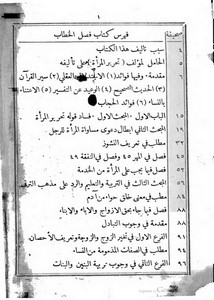 ١
صحيفة فهرس كتاب فصل الخطاب
٤ سبب تأليف هذا الكتاب
٥ الحامل للمؤلف (تحرير المرأة) على تأليفه
٥ مقدمة . وفيها فوائد (١) الاستدلال العقلي (٢) سير القرآن
(٣) الحديث الصحيح (٤) الوعيد عن التفسير (٥) الاستناء
بالنساء (٦) فوائد الحجاب
١٥ الباب الاول . البحث الاول . فساد قوله تحرير المرأة
البحث الثاني ابطال دعوى مساواة المرأة للرجل
مطلب في تعريف النشوز
٤٥ فصل في المهر ٤٥ وفصل في النفقة ٤٩
فصل فيما يجب على المرأة من الخدمة
٥٦ البحث الثالث في التربية والتعليم والرد على مذهب الترقي
مطلب في معنى خلق حواء من آدم
٨٨ فصل فيما جاء بحق الازواج والاباء والابناء
مقدمة في وجوب التبادل
٩٤ الفرع الاول في تخير الزوج والزوجة وتعريف الاحصان
مطلب في الصفات المذمومة من النساء
٩٦ الفرع الثاني في وجوب تربية البنين والبنات